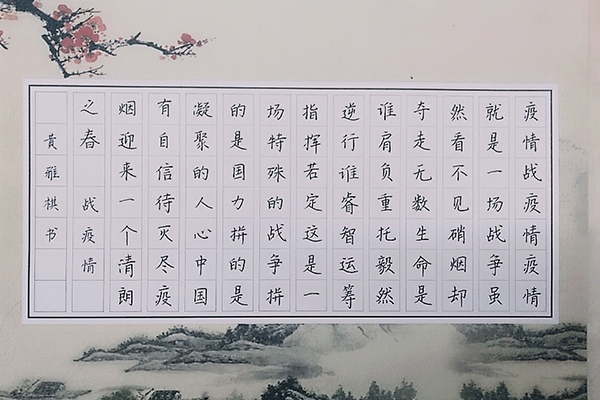 疫情战疫情疫情
就是一场战争虽
然看不见硝烟却
夺走无数生命是
谁肩负重托毅然
逆行谁睿智运筹
指挥若定这是一
场特殊的战争拼
的是国力拼的是
凝聚的人心中国
有自信待灭尽疫
烟迎来一个清朗
之春 战疫情
黄雅棋书